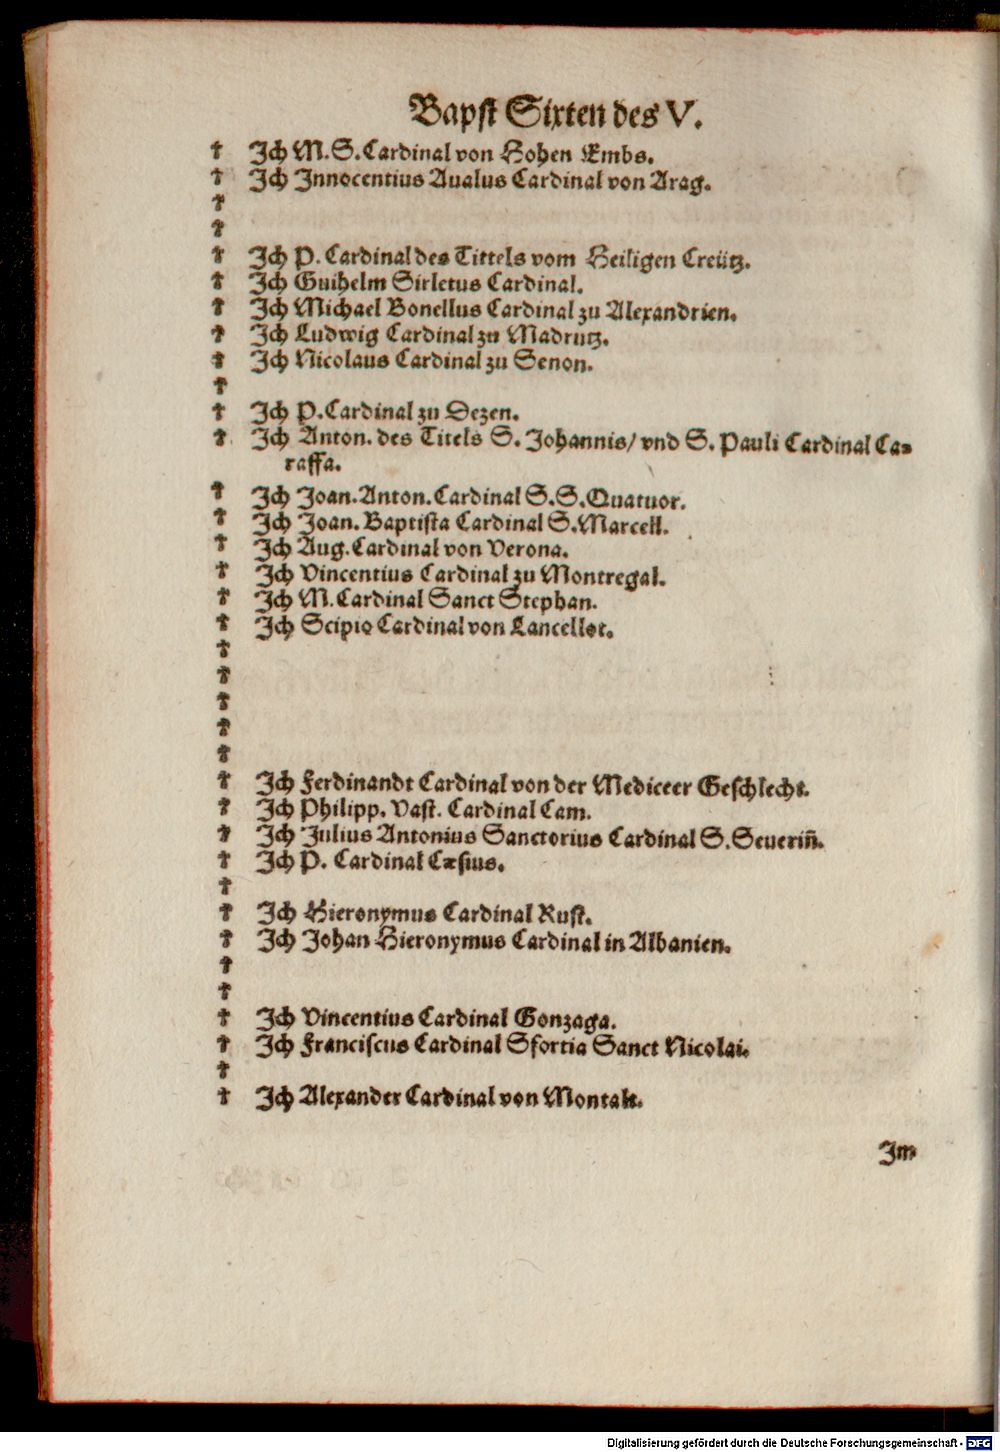 Bapst Sixten des V.
† Ich M. S. Cardinal von Hohen Embs.
† Ich Innocentius Aualus Cardinal von Arag.
†
†
† Ich P. Cardinal des Tittels vom Heiligen Creütz.
† Ich Guihelm Sirletus Cardinal.
† Ich Michael Bonellus Cardinal zu Alexandrien.
† Ich Ludwig Cardinal zu Madrutz.
† Ich Nicolaus Cardinal zu Senon.
†
† Ich P. Cardinal zu Dezen.
† Ich Anton. des Titels S. Johannis/ vnd S. Pauli Cardinal Ca-
raffa.
† Ich Joan. Anton. Cardinal S. S. Quatuor.
† Ich Joan. Baptista Cardinal S. Marcell.
† Ich Aug. Cardinal von Verona.
† Ich Vincentius Cardinal zu Montregal.
† Ich M. Cardinal Sanct Stephan.
† Ich Scipio Cardinal von Lancellot.
†
†
†
†
†
† Ich Ferdinandt Cardinal von der Mediceer Geschlecht.
† Ich Philipp. Vast. Cardinal Cam.
† Ich Julius Antonius Sanctorius Cardinal S. Seuerin̄.
† Ich P. Cardinal Cæsius.
†
† Ich Hieronymus Cardinal Rust.
† Ich Johan Hieronymus Cardinal in Albanien.
†
†
† Ich Vincentius Cardinal Gonzaga.
† Ich Franciscus Cardinal Sfortia Sanct Nicolai.
†
† Ich Alexander Cardinal von Montalt.
Im
Digitalisierung gefördert durch die Deutsche Forschungsgemeinschaft - DFG